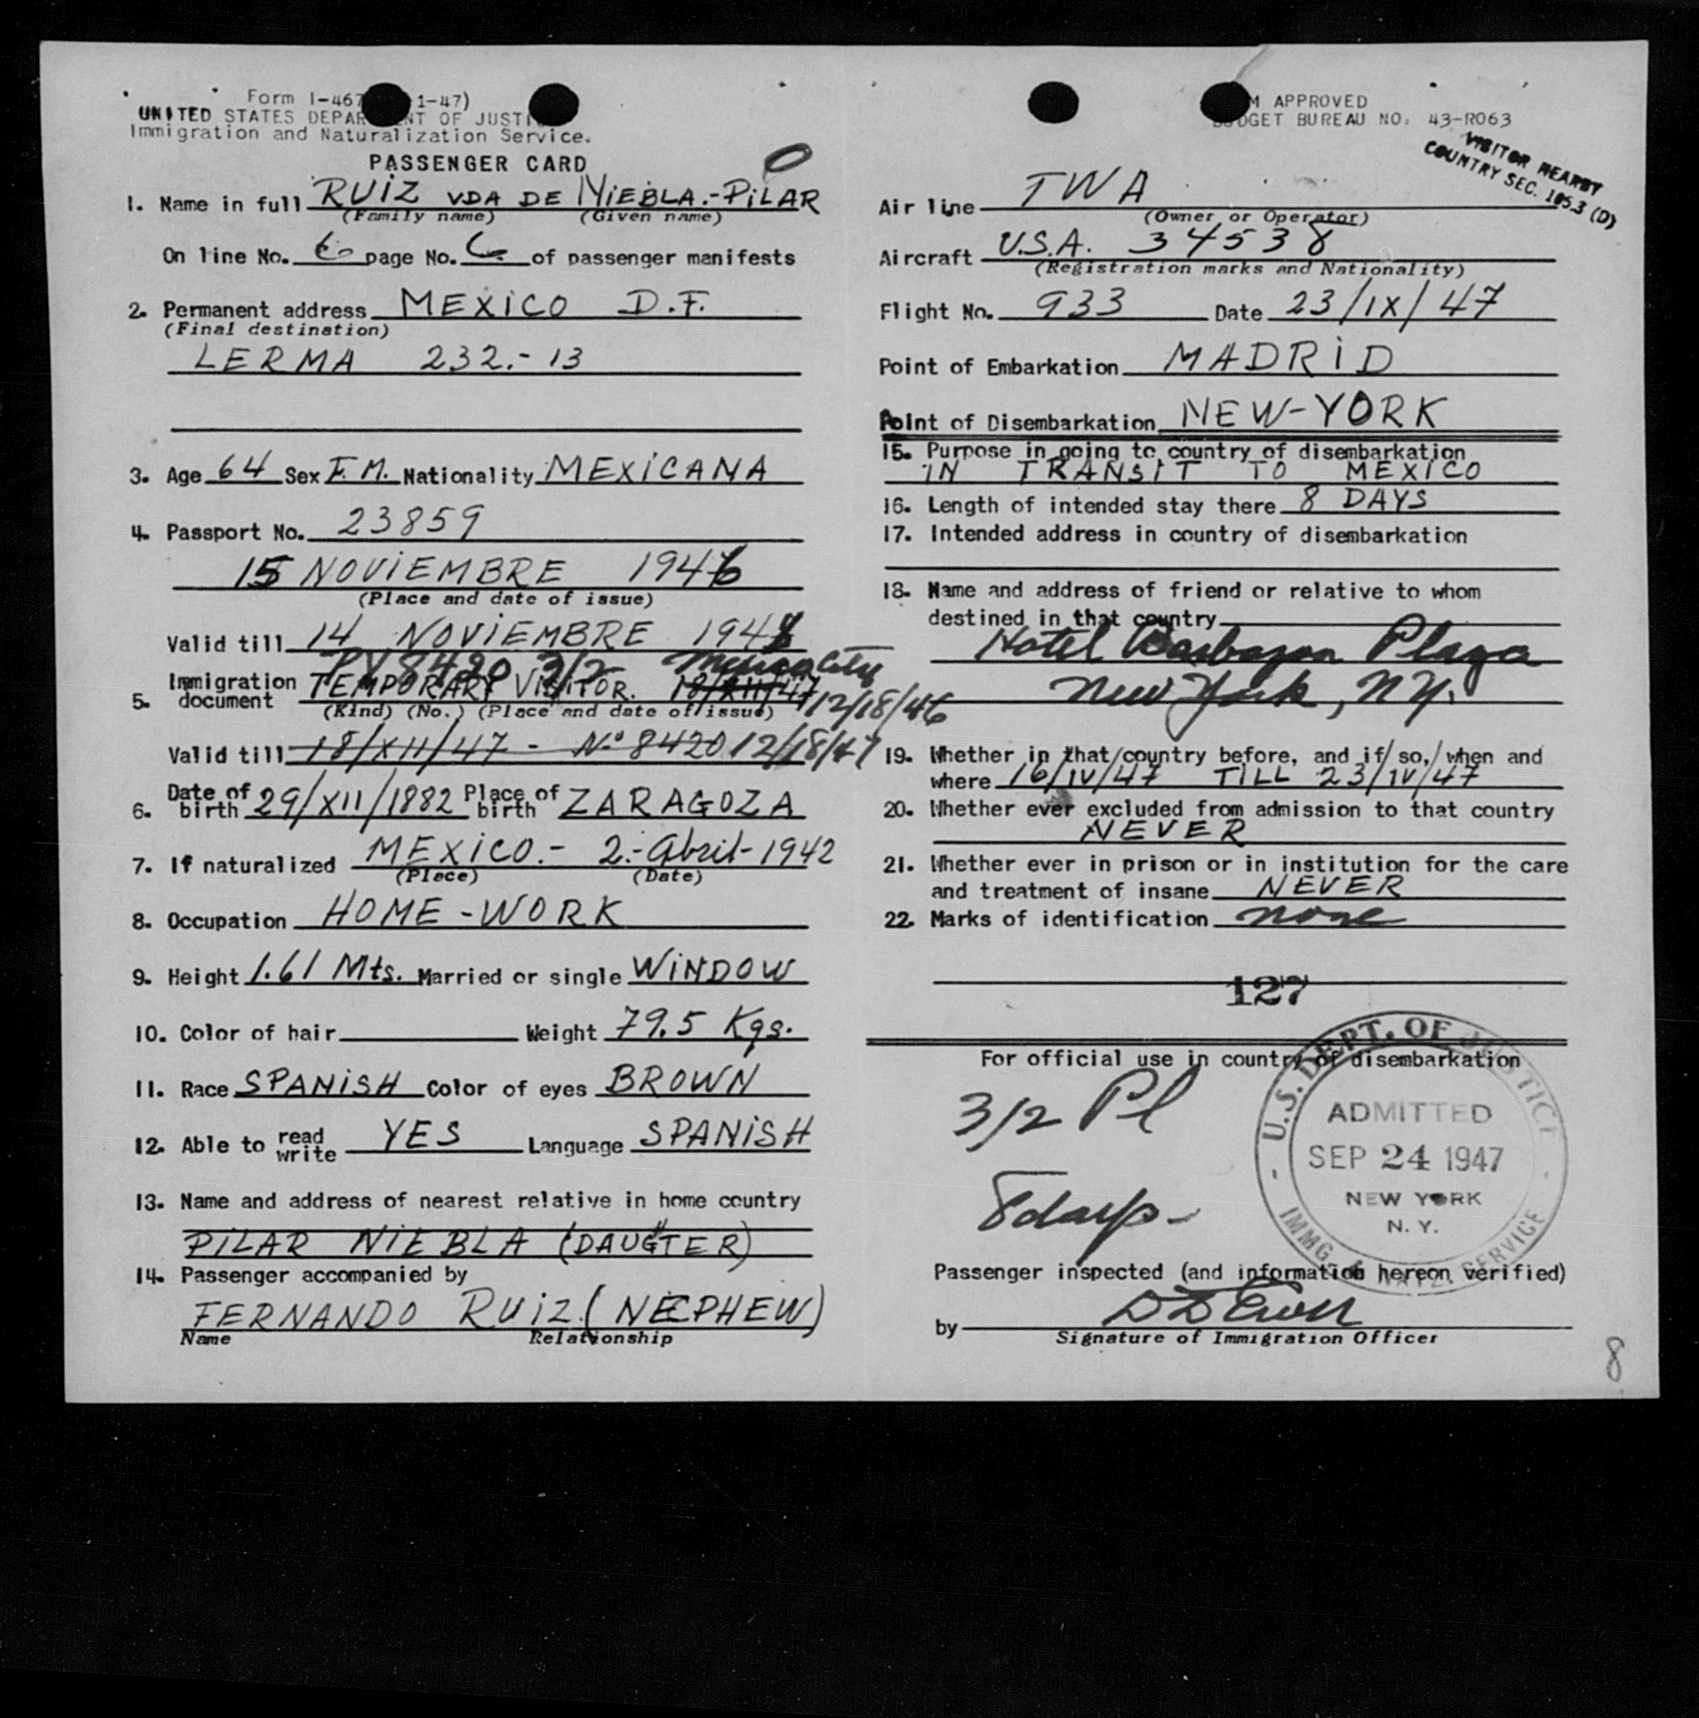 Form I-467 1-47)
UNITED STATES DEPARTMENT OF JUSTICE
Immigration and Naturalization Service.
PASSENGER CARD
0
1. Name in full RUIZ VDA DE NIEBLA.-PILAR
(Family name) (Given name)
On line No. 6 page No. 6 of passenger manifests
2. Permanent address MEXICO D.F.
(Final destination)
LERMA 232.-13
3. Age 64 Sex F.M. Nationality MEXICANA
4. Passport No. 23859
15 NOVIEMBRE 1946
(Place and date of issue)
Valid till 14 NOVIEMBRE 1948
PV 8420 3/2 Mexico City
5. Immigration document TEMPORARY VISITOR. 18/XII/47 12/18/46
(Kind) (No.) (Place and date of issue)
Valid till 18/XII/47 - Nº 8420 12/18/47
6. Date of birth 29/XII/1882 Place of birth ZARAGOZA
7. If naturalized MEXICO.- 2.-Abril-1942
(Place) (Date)
8. Occupation HOME-WORK
9. Height 1.61 Mts. Married or single WINDOW
10. Color of hair Weight 79.5 Kgs.
11. Race SPANISH Color of eyes BROWN
12. Able to read write YES Language SPANISH
13. Name and address of nearest relative in home country
PILAR NIEBLA (DAUGHTER)
14. Passenger accompanied by
FERNANDO RUIZ (NEPHEW)
Name Relationship
FORM APPROVED
BUDGET BUREAU NO. 43-R063
VISITOR NEARBY
COUNTRY SEC. 165.3 (D)
Air line TWA
(Owner or Operator)
Aircraft U.S.A. 34538
(Registration marks and Nationality)
Flight No. 933 Date 23/IX/47
Point of Embarkation MADRID
Point of Disembarkation NEW-YORK
15. Purpose in going to country of disembarkation
IN TRANSIT TO MEXICO
16. Length of intended stay there 8 DAYS
17. Intended address in country of disembarkation
18. Name and address of friend or relative to whom
destined in that country
Hotel Barbazon Plaza
New York, N.Y.
19. Whether in that country before, and if so, when and
where 16/IV/47 TILL 23/IV/47
20. Whether ever excluded from admission to that country
NEVER
21. Whether ever in prison or in institution for the care
and treatment of insane NEVER
22. Marks of identification none
127
For official use in country of disembarkation
3/2 Pl
8 days-
U.S. DEPT. OF JUSTICE
ADMITTED
SEP 24 1947
NEW YORK
N.Y.
IMMG. & NATZ. SERVICE
Passenger inspected (and information hereon verified)
by
Signature of Immigration Officer
8